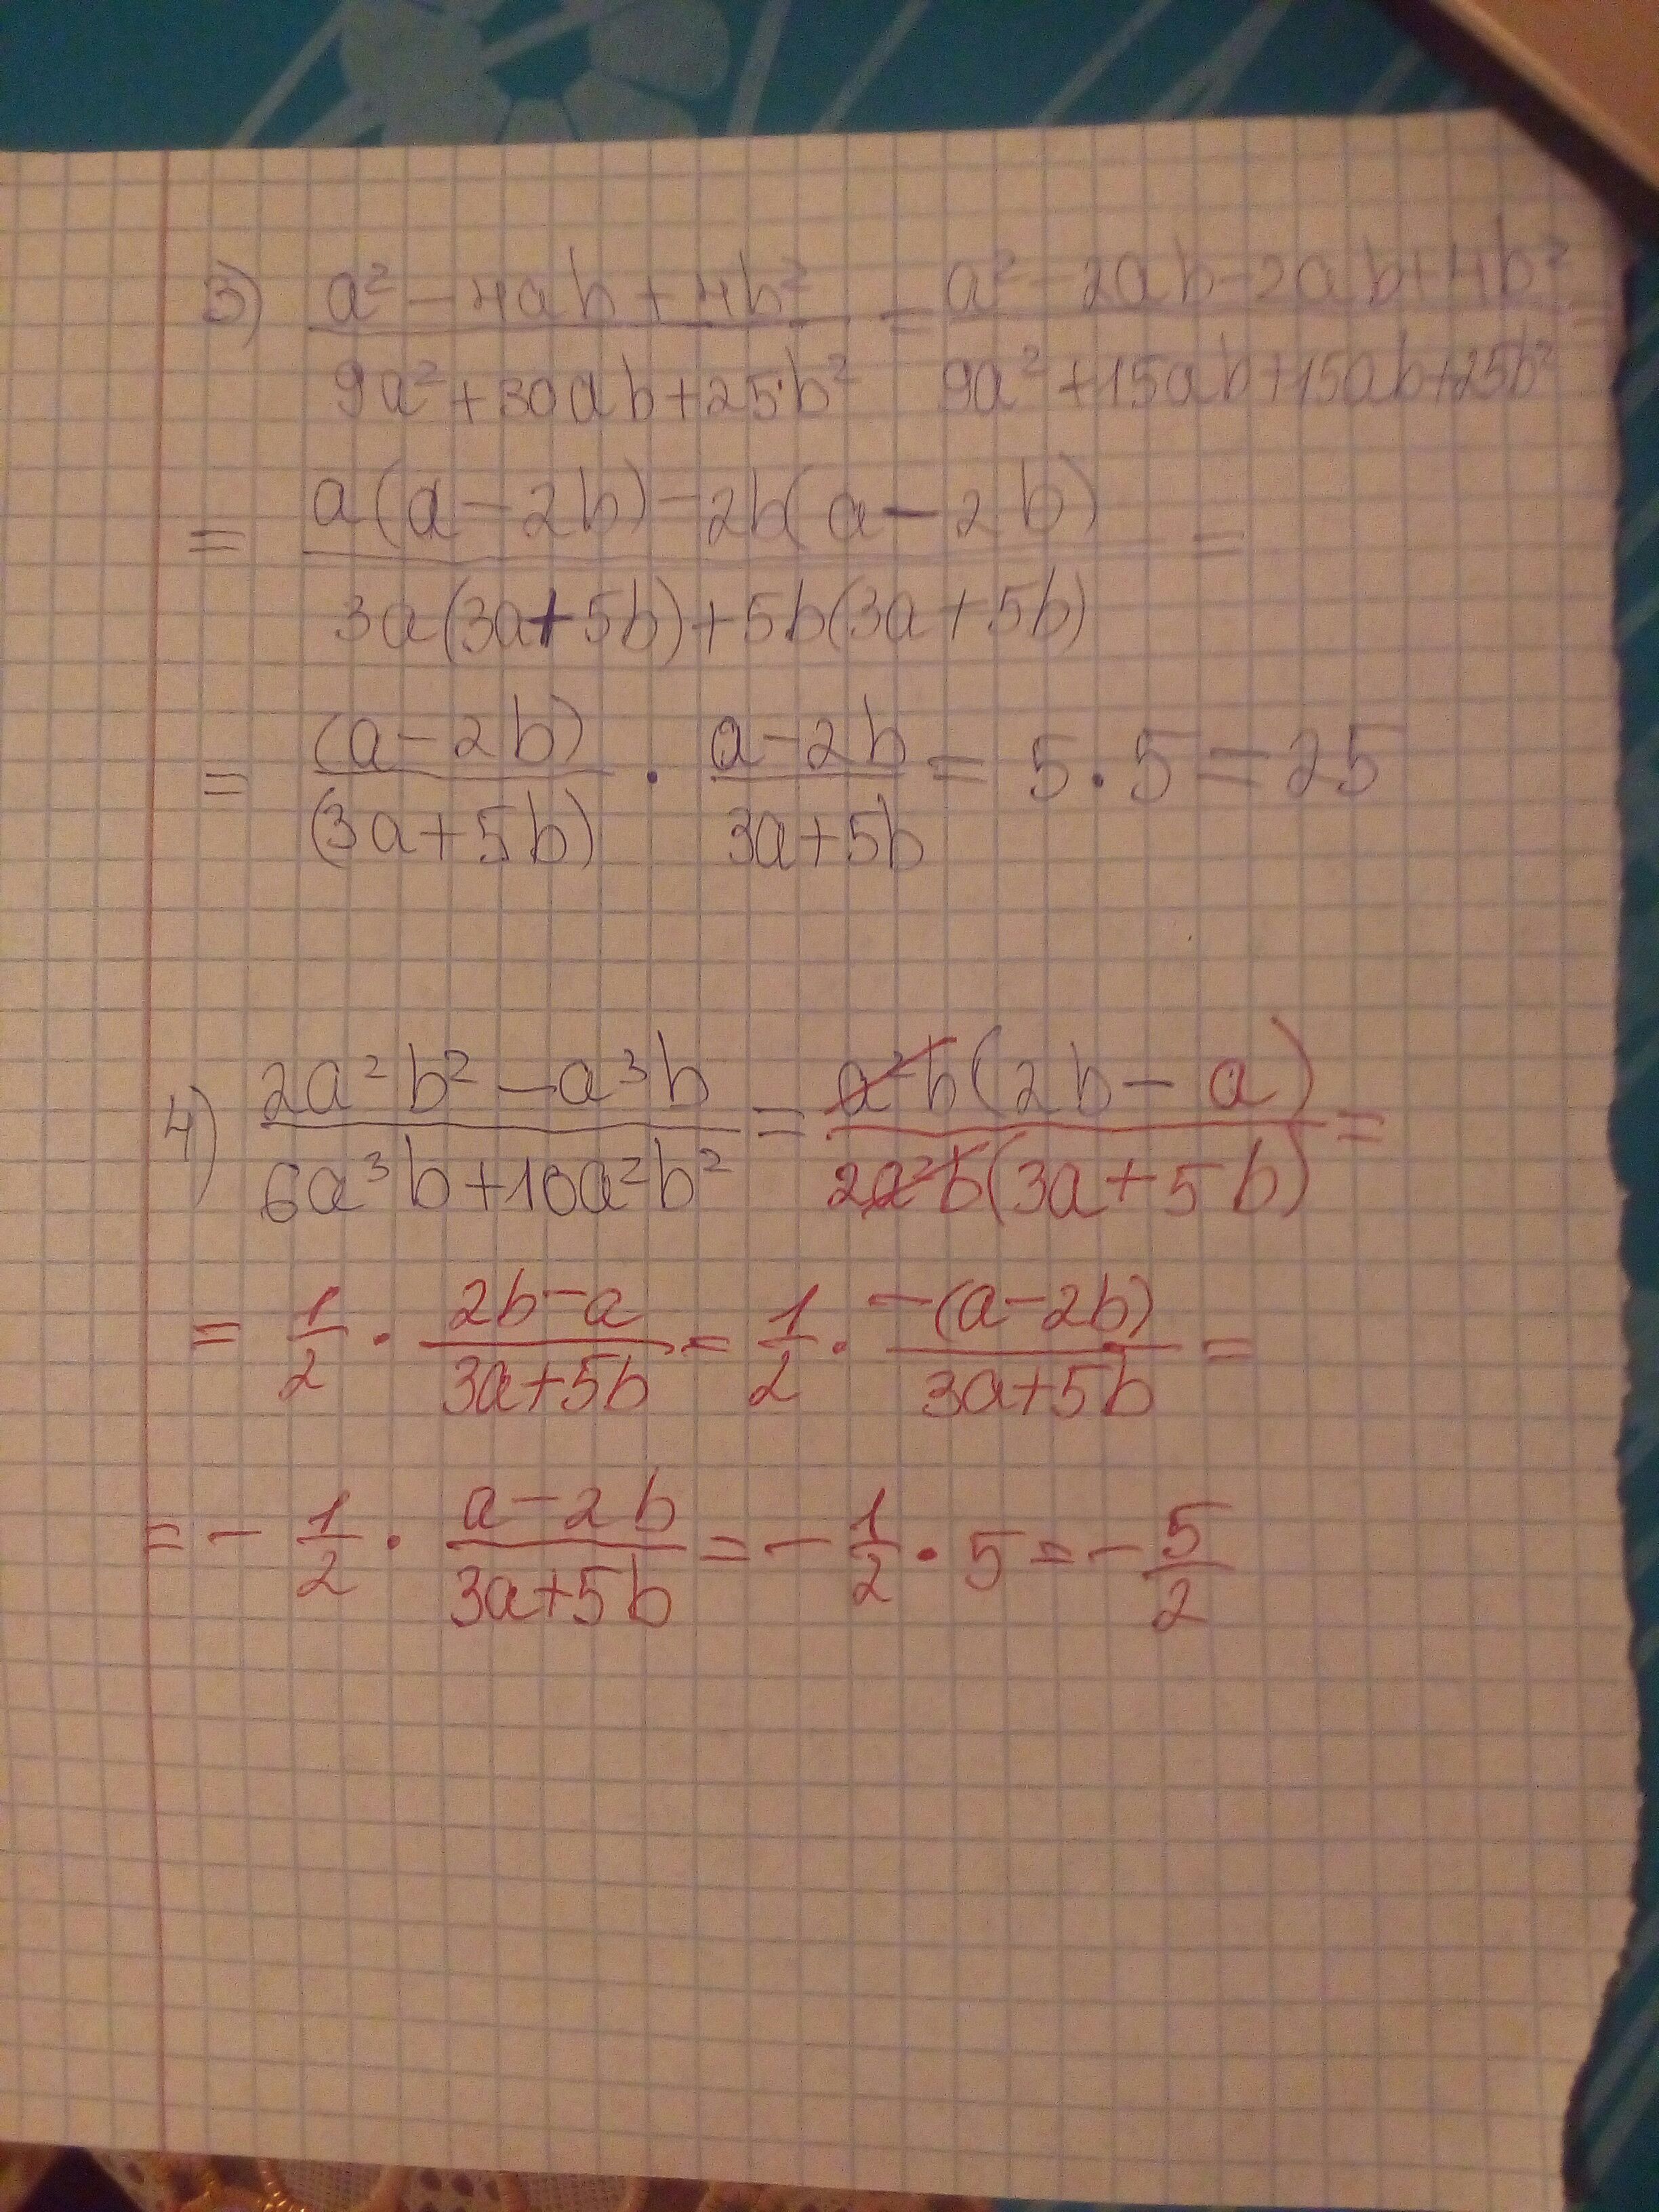 3) (a² - 4ab + 4b²)/(9a² + 30ab + 25·b²) = (a² - 2ab - 2ab + 4b²)/(9a² + 15ab + 15ab + 25b²) =
= (a(a - 2b) - 2b(a - 2b))/(3a(3a + 5b) + 5b(3a + 5b)) =
= (a - 2b)/(3a + 5b) · (a - 2b)/(3a + 5b) = 5 · 5 = 25
4) (2a²b² - a³b)/(6a³b + 10a²b²) = (a²b(2b - a))/(2a²b(3a + 5b)) =
= 1/2 · (2b - a)/(3a + 5b) = 1/2 · (-(a - 2b))/(3a + 5b) =
= - 1/2 · (a - 2b)/(3a + 5b) = - 1/2 · 5 = - 5/2